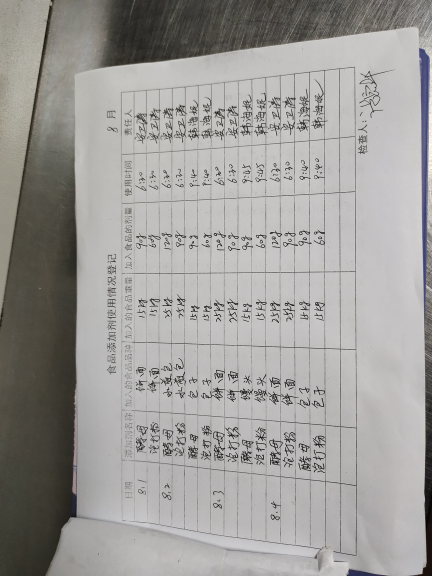 食品添加剂使用情况登记
8 月
日期 添加剂名称 加入的食品品种 加入的食品重量 加入食品的剂量 使用时间 责任人
8.1 酵母 饼面 15kg 90g 6:30 安卫涛
泡打粉 饼面 15kg 60g 6:30 安卫涛
8.2 酵母 水煎包 25kg 120g 6:30 安卫涛
泡打粉 水煎包 25kg 90g 6:30 安卫涛
酵母 包子 15kg 90g 9:40 韩海妮
泡打粉 包子 15kg 60g 9:40 韩海妮
8.3 酵母 饼面 25kg 120g 6:30 安卫涛
泡打粉 饼面 25kg 90g 6:30 安卫涛
酵母 馒头 15kg 90g 9:45 韩海妮
泡打粉 馒头 15kg 60g 9:45 韩海妮
8.4 酵母 饼面 25kg 120g 6:30 安卫涛
泡打粉 饼面 25kg 90g 6:30 安卫涛
酵母 包子 15kg 90g 9:40 韩海妮
泡打粉 包子 15kg 60g 9:40 韩海妮
检查人：